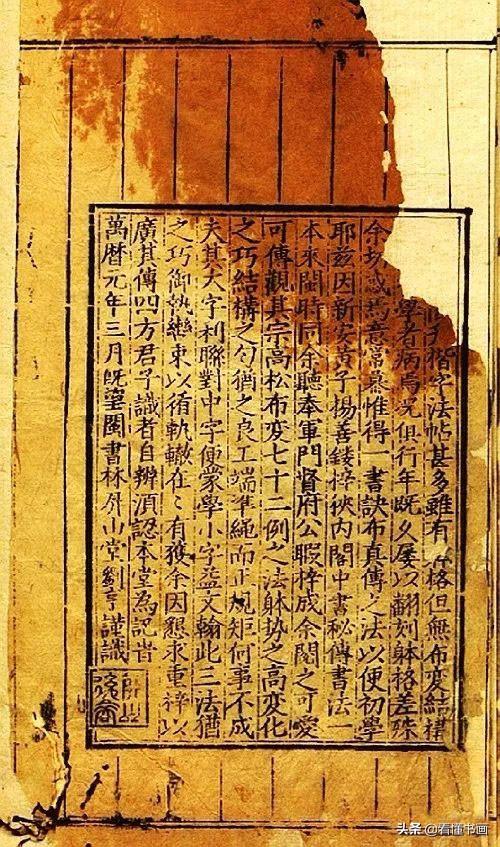 楷字法帖甚多雖有格但無布変結構
學者病焉况俱行年既久屡以翻刻躰格差殊
余切或焉意當最惟得一書訣布真傳之法以便初學
耶兹因新安黄子楊善鋟梓俠内閣中書秘傳書法一
本來閩時同余聽奉軍門督府公暇梓成余閱之可愛
可傳觀其宗高松布変七十二例之法躰势之高変化
之巧結構之匀猶之良工端凖䋲而正規矩何事不成
夫其大字利聯對中字便蒙學小字益文翰此三法猶
之巧御執轡束以循軌轍在〻有獲余因懇求重梓以
廣其傳四方君子識者自辨湏認本堂為記旹
萬曆元年三月既朢閩書林屏山堂劉亨謹識
头条@看懂书画